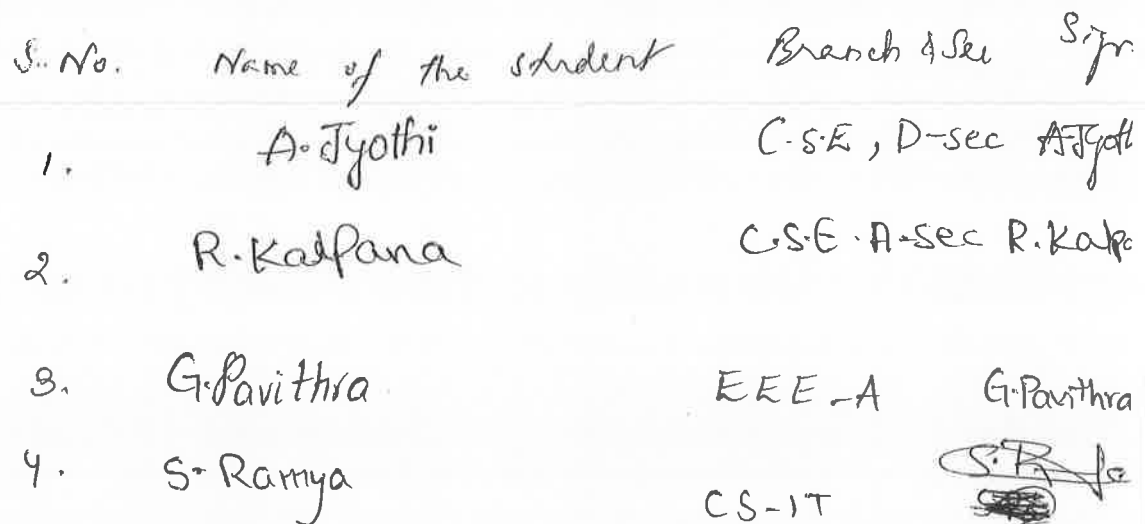 S.No. Name of the student Branch & Sec Sign
1. A.Jyothi C.S.E, D-sec A.Jyoth
2. R.Kalpana C.S.E.A-sec R.Kalpa
3. G.Pavithra EEE-A G.Pavithra
4. S.Ramya CS-IT S.R